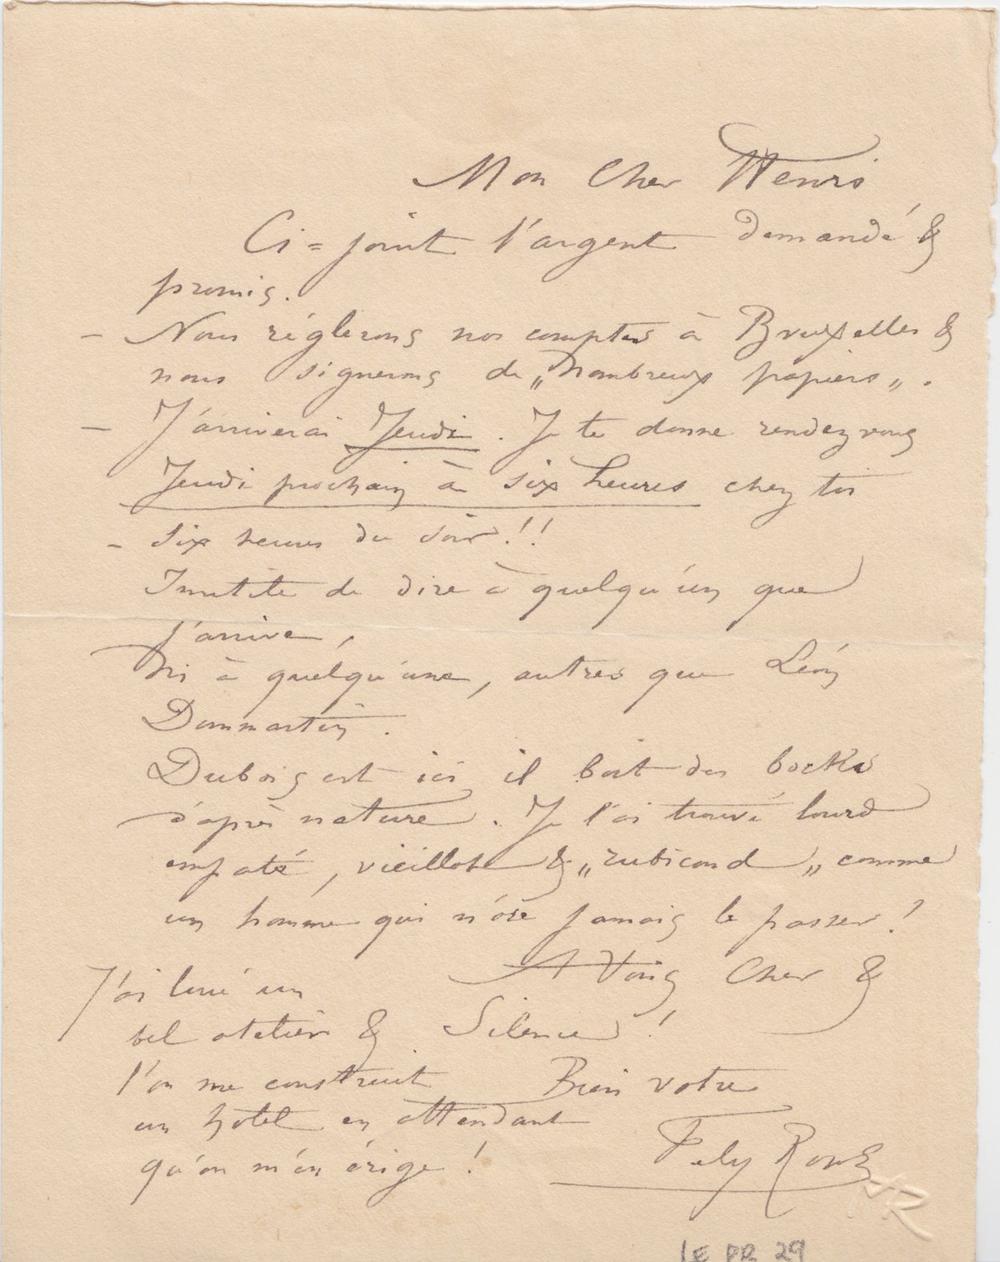 Mon Cher Henri
Ci=joint l'argent demandé &
promis.
– Nous réglerons nos comptes à Bruxelles &
nous signerons de „nombreux papiers„.
– J'arriverai Jeudi. Je te donne rendez vous
Jeudi prochain à six heures chez toi
– six heures du soir!!
Inutile de dire à quelqu'un que
j'arrive,
Ni à quelqu'une, autres que Léon
Dommartin.
Dubois est ici il boit des bocks
d'après nature. Je l'ai trouvé lourd
empaté, vieillot & „rubicond„ comme
un homme qui n'ose jamais le passer!
A Vous Cher &
Silence!
Bien votre
Fely Rops
J'ai loué un
bel atelier &
l'on me construit
un hotel en attendant
qu'on m'en érige!
FR
LE PR 29